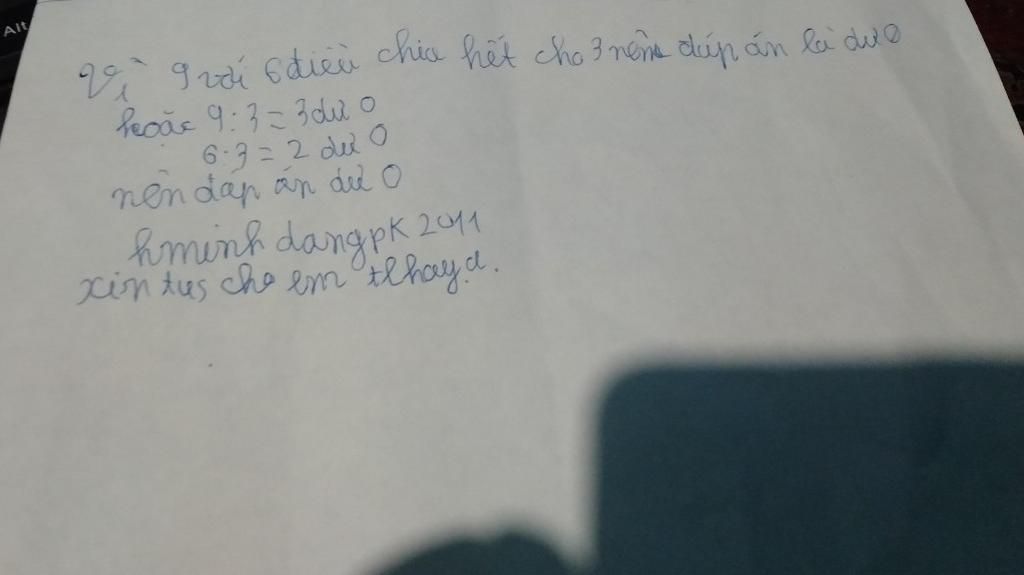 Alt
Vì 9 với 6 điều chia hết cho 3 nên đáp án là dư 0
hoặc 9:3=3 dư 0
6:3=2 dư 0
nên đáp án dư 0
hminhdangpk2011
xin tus cho em tlhay ạ.